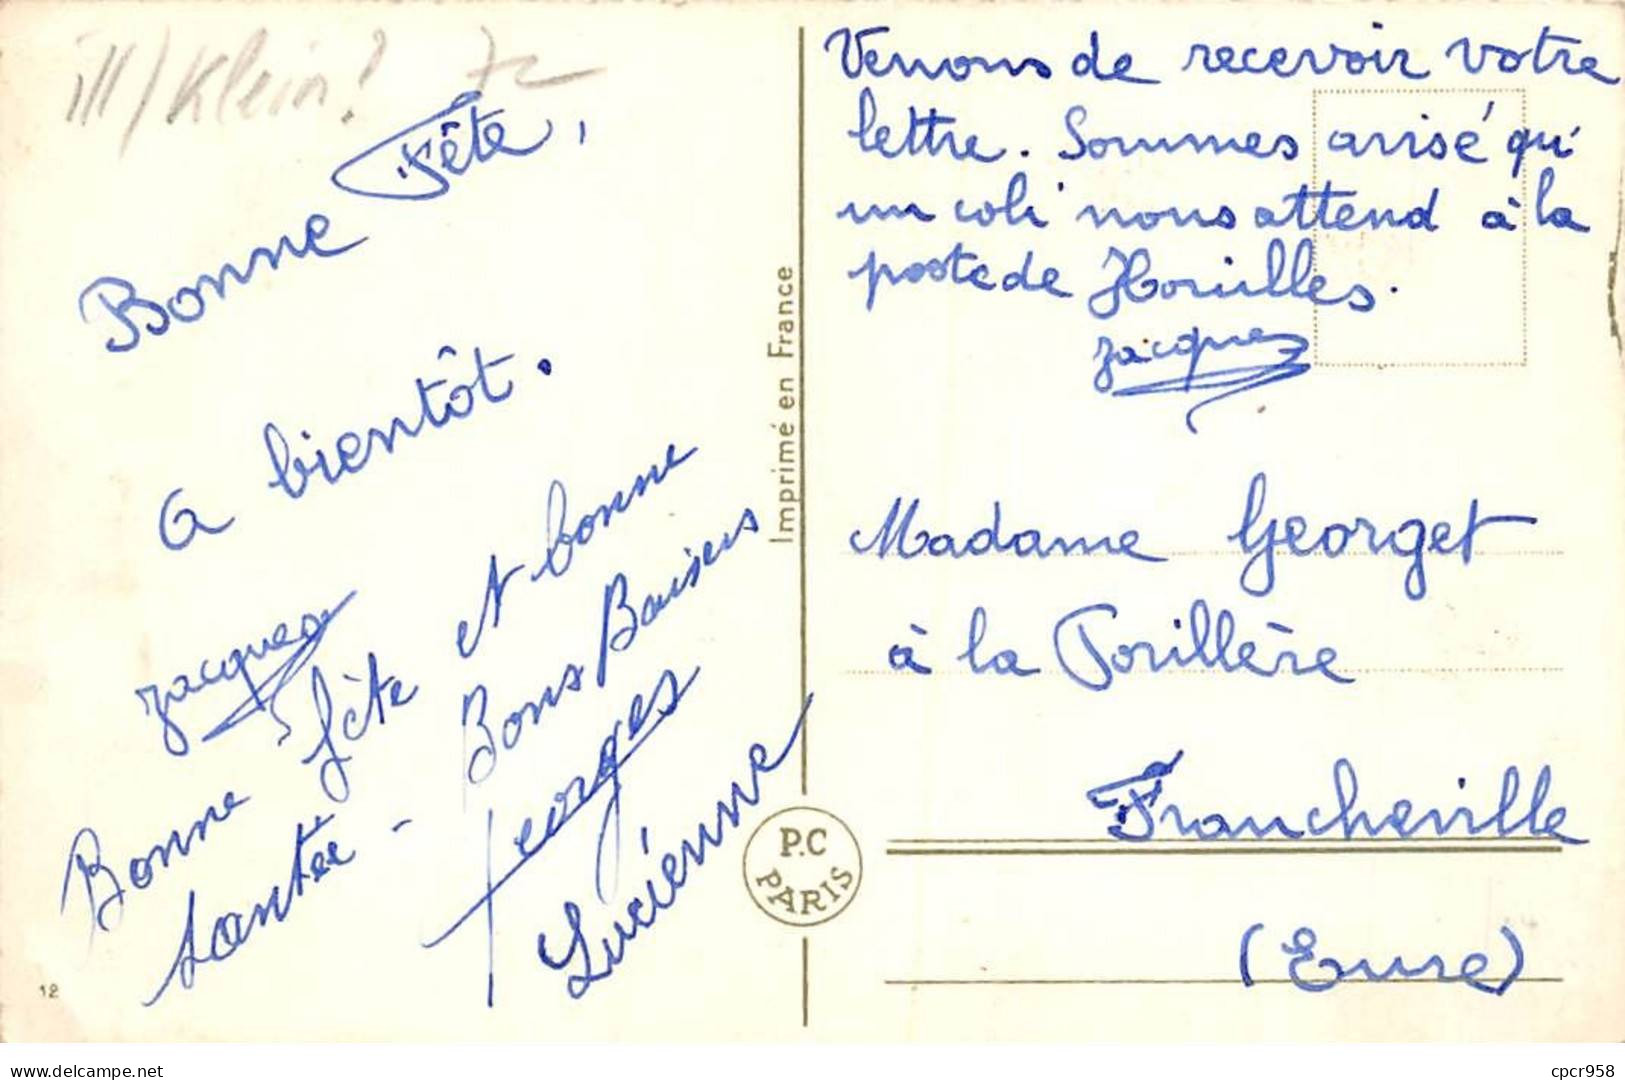 ill) Klein? 72
Bonne Fête,
a bientôt.
Jacques
Bonne fête et bonne
santée - Bons Baisers
Georges
Lucienne
12
Imprimé en France
P.C
PARIS
Venons de recevoir votre
lettre. Sommes avisé qu'
un coli nous attend à la
poste de Houilles.
Jacques
Madame Georget
à la Porillère
Francheville
(Eure)
Delcampe.net
cpcr958